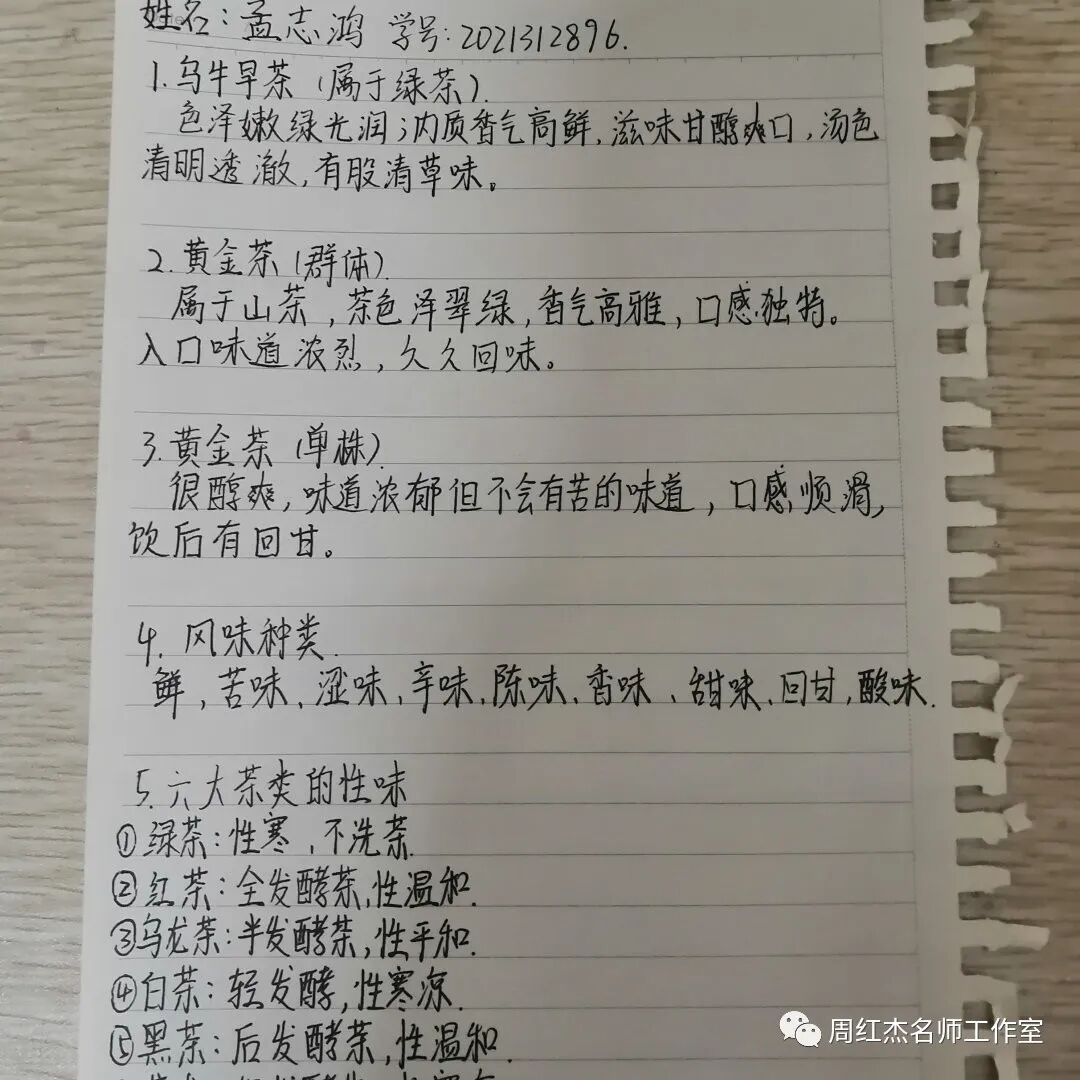 姓名：孟志鸿 学号：2021312896.
1.乌牛早茶（属于绿茶）.
色泽嫩绿光润；内质香气高鲜，滋味甘醇爽口，汤色
清明透澈，有股清草味。
2.黄金茶（群体）.
属于山茶，茶色泽翠绿，香气高雅，口感独特。
入口味道浓烈，久久回味。
3.黄金茶（单株）.
很醇爽，味道浓郁但不会有苦的味道，口感顺滑，
饮后有回甘。
4. 风味种类.
鲜，苦味、涩味、辛味、陈味、香味、甜味、回甘，酸味.
5.六大茶类的性味
①绿茶：性寒，不洗茶.
②红茶：全发酵茶，性温和.
③乌龙茶：半发酵茶，性平和.
④白茶：轻发酵，性寒凉.
⑤黑茶：后发酵茶，性温和.
周红杰名师工作室